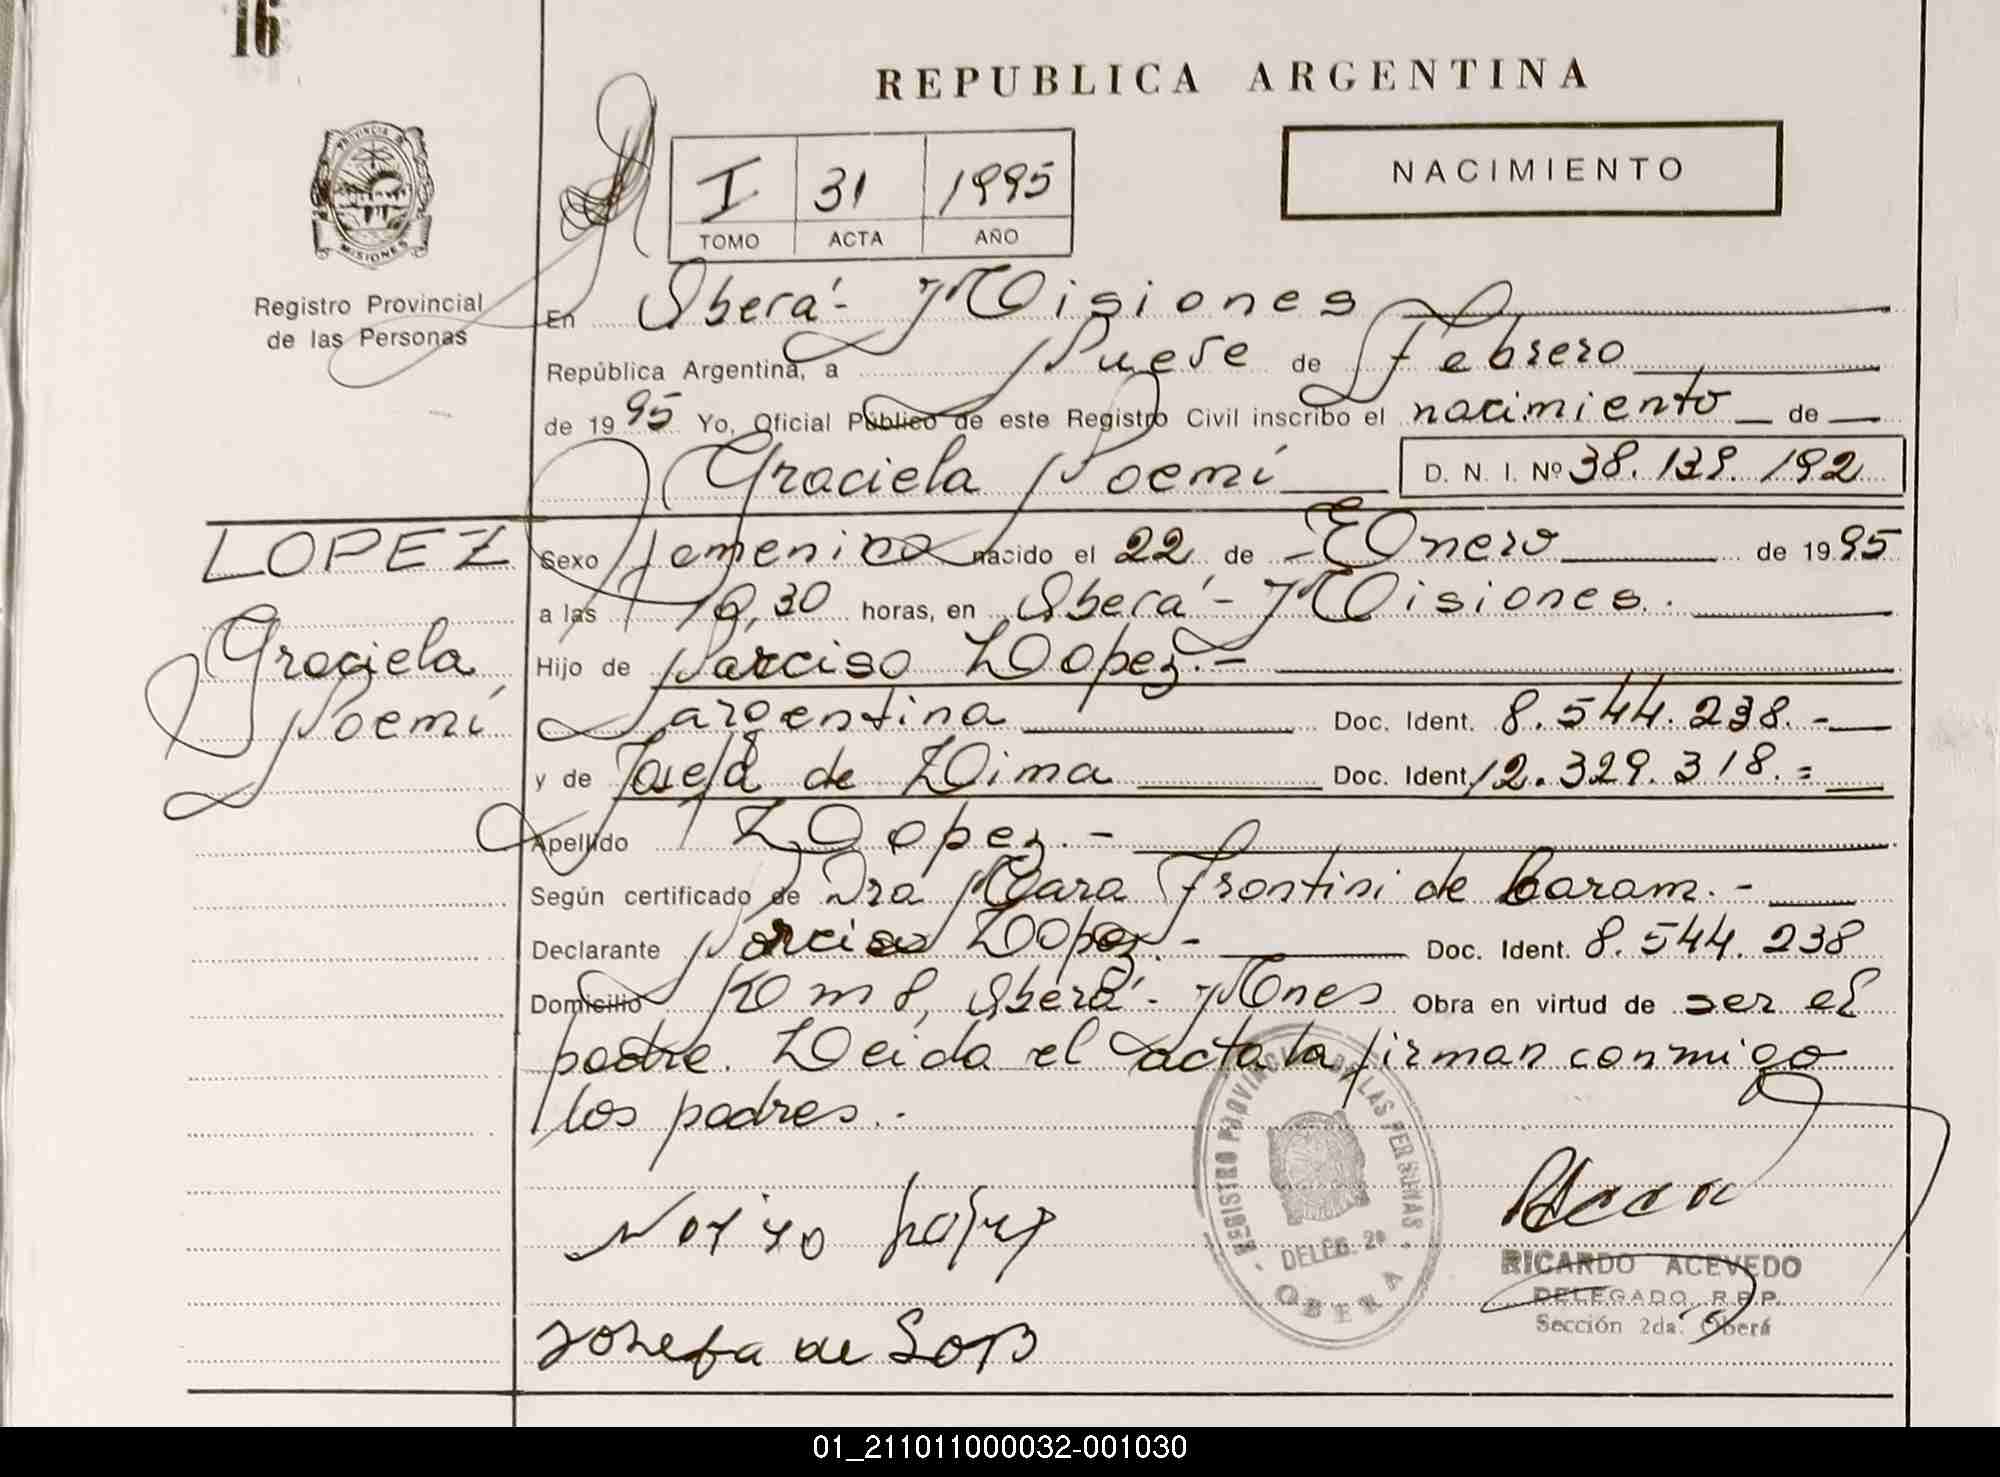 16
REPUBLICA ARGENTINA
PROVINCIA DE
MISIONES
Registro Provincial
de las Personas
I 31 1995
TOMO ACTA AÑO
NACIMIENTO
En Oberá - Misiones
República Argentina, a Nueve de Febrero
de 1995 Yo, Oficial Público de este Registro Civil inscribo el nacimiento de
Graciela Noemí D. N. I. Nº 38.139.192
LOPEZ
Graciela
Noemí
Sexo femenino nacido el 22 de Enero de 1995
a las 19,30 horas, en Oberá - Misiones.
Hijo de Narciso Lopez.-
argentina Doc. Ident. 8.544.238.-
y de Josefa de Lima Doc. Ident. 12.329.318.=
Apellido Lopez.-
Según certificado de Dra Mara Frontini de Caram.-
Declarante Narciso Lopez.- Doc. Ident. 8.544.238
Domicilio Km 8, Oberá - Mnes Obra en virtud de ser el
padre. Leida el acta la firman conmigo
los padres.-
REGISTRO PROVINCIAL DE LAS PERSONAS
DELEG. 2ª
OBERA
RICARDO ACEVEDO
DELEGADO R.P.P.
Sección 2da. Oberá
Josefa de
01_211011000032-001030